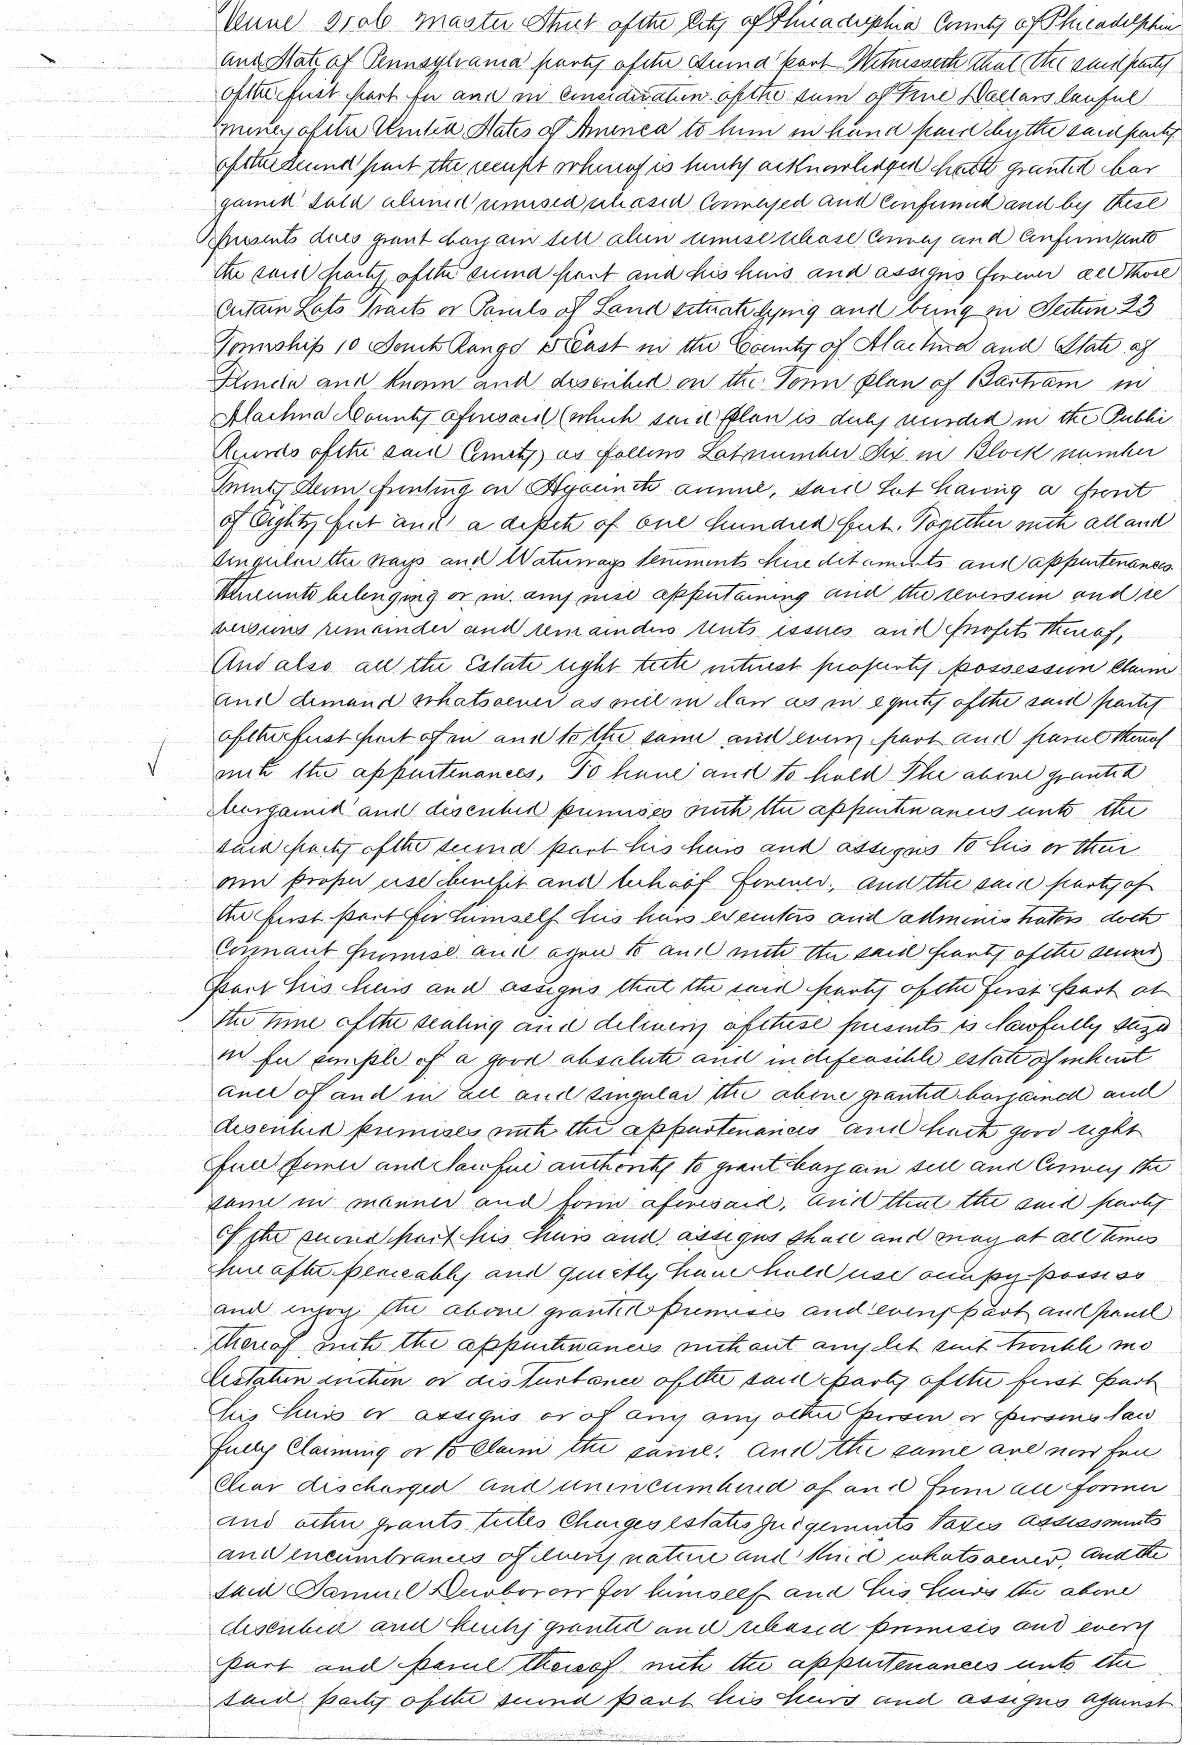 Venue 3108 Master Street of the City of Philadelphia County of Philadelphia
and State of Pennsylvania party of the second part Witnesseth that the said party
of the first part for and in consideration of the sum of Five Dollars lawful
money of the United States of America to him in hand paid by the said party
of the second part the receipt whereof is hereby acknowledged hath granted bar
gained sold aliened remised released Conveyed and confirmed and by these
presents does grant bargain sell alien remise release Convey and Confirm unto
the said party of the second part and his heirs and assigns forever all those
certain Lots Tracts or Parcels of Land situate lying and being in Section 23
Township 10 South Range East in the County of Alachua and State of
Florida and known and described on the Town plan of Bartram in
Alachua County aforesaid (which said plan is duly recorded in the Public
Records of the said County) as follows Lot number Six in Block number
Twenty Seven fronting on Hyacinth avenue, said Lot having a front
of Eighty feet and a depth of one hundred feet. Together with all and
singular the ways and Waterways tenements hereditaments and appurtenances
thereunto belonging or in any wise appertaining and the reversion and re
versions remainder and remainders rents issues and profits thereof,
And also all the Estate right title interest property possession Claim
and demand whatsoever as well in law as in equity of the said party
of the first part of in and to the same and every part and parcel thereof
with the appurtenances, To have and to hold The above granted
bargained and described premises with the appurtenances unto the
said party of the second part his heirs and assigns to his or their
own proper use benefit and behoof forever, and the said party of
the first part for himself his heirs executors and administrators doth
Covenant promise and agree to and with the said party of the second
part his heirs and assigns that the said party of the first part at
the time of the sealing and delivery of these presents is lawfully seized
in fee simple of a good absolute and indefeasible estate of inherit
ance of and in all and singular the above granted bargained and
described premises with the appurtenances and hath good right
full power and lawful authority to grant bargain sell and Convey the
same in manner and form aforesaid, and that the said party
of the second part his heirs and assigns shall and may at all times
hereafter peaceably and quietly have hold use occupy possess
and enjoy the above granted premises and every part and parcel
thereof with the appurtenances without any let suit trouble mo
lestation eviction or disturbance of the said party of the first part
his heirs or assigns or of any any other person or persons law
fully Claiming or to Claim the same. and the same are now free
Clear discharged and unincumbered of and from all former
and other grants titles Charges estates judgements taxes assessments
and encumbrances of every nature and kind whatsoever, and the
said Samuel for himself and his heirs the above
described and hereby granted and released premises and every
part and parcel thereof with the appurtenances unto the
said party of the second part his heirs and assigns against